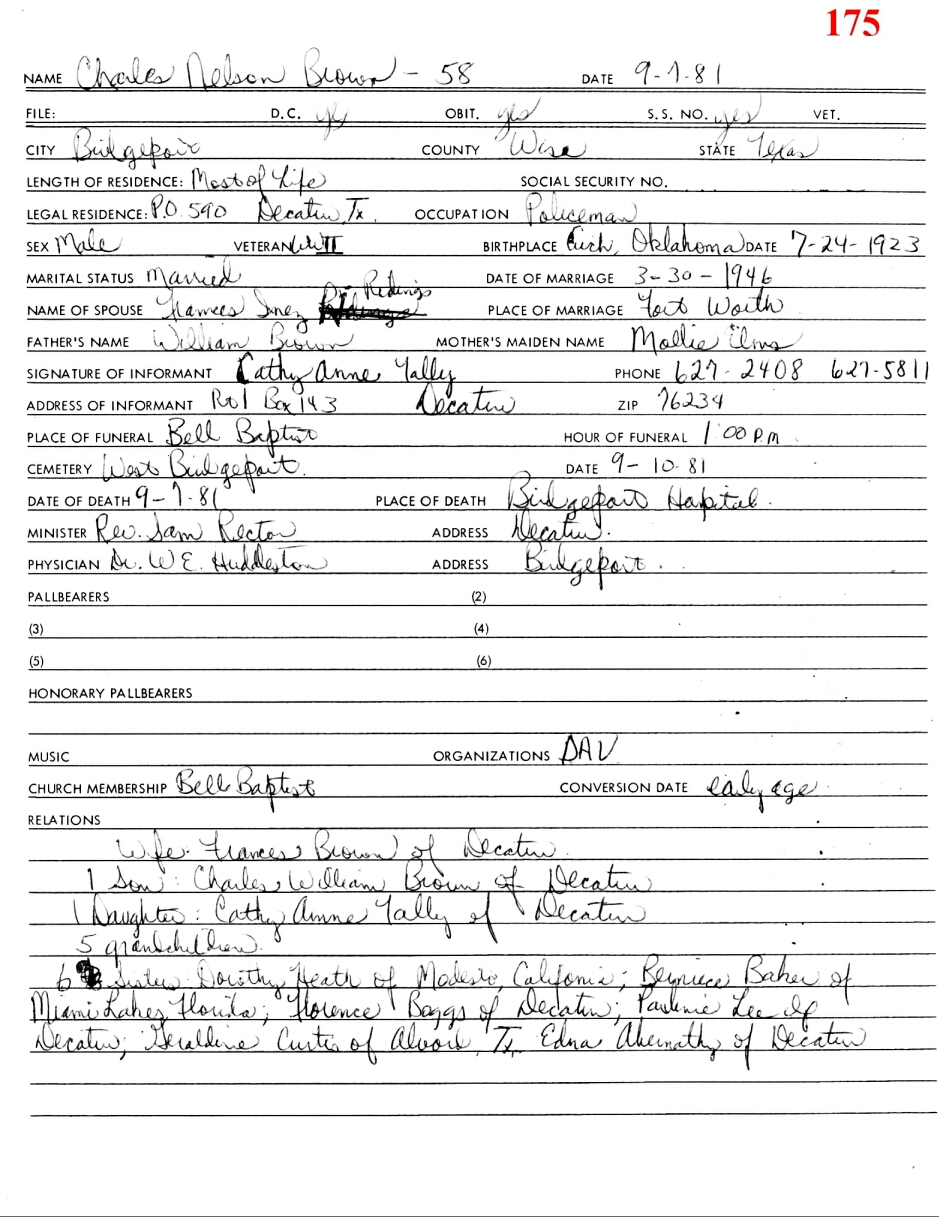 175
NAME Charles Nelson Brown - 58 DATE 9-7-81
FILE: D.C. yes OBIT. yes S.S. NO. yes VET.
CITY Bridgeport COUNTY Wise STATE Texas
LENGTH OF RESIDENCE: Most of Life SOCIAL SECURITY NO.
LEGAL RESIDENCE: P.O. 590 Decatur, Tx. OCCUPATION Policeman
SEX Male VETERAN WW II BIRTHPLACE Oklahoma DATE 7-24-1923
MARITAL STATUS Married DATE OF MARRIAGE 3-30-1946
NAME OF SPOUSE Frances Inez Redings PLACE OF MARRIAGE Fort Worth
FATHER'S NAME William Brown MOTHER'S MAIDEN NAME Mollie Elms
SIGNATURE OF INFORMANT Cathy Anne Tally PHONE 627-2408 627-5811
ADDRESS OF INFORMANT Rt 1 Box 143 Decatur ZIP 76234
PLACE OF FUNERAL Bell Baptist HOUR OF FUNERAL 1:00 P.M.
CEMETERY West Bridgeport. DATE 9-10-81
DATE OF DEATH 9-7-81 PLACE OF DEATH Bridgeport Hospital.
MINISTER Rev. Sam Rector ADDRESS Decatur.
PHYSICIAN Dr. W E. Huddleston ADDRESS Bridgeport.
PALLBEARERS (2)
(3) (4)
(5) (6)
HONORARY PALLBEARERS
MUSIC ORGANIZATIONS DAV
CHURCH MEMBERSHIP Bell Baptist CONVERSION DATE early age
RELATIONS
Wife- Frances Brown of Decatur.
1 Son: Charles William Brown of Decatur
1 Daughter: Cathy Anne Tally of Decatur
5 grandchildren.
6 Sisters Dorothy Heath of Modesto, California; Berniece Baker of
Miami Lakes, Florida; Florence Boggs of Decatur; Pauline Lee of
Decatur; Geraldine Curtis of Alvord, Tx, Edna Abernathy of Decatur